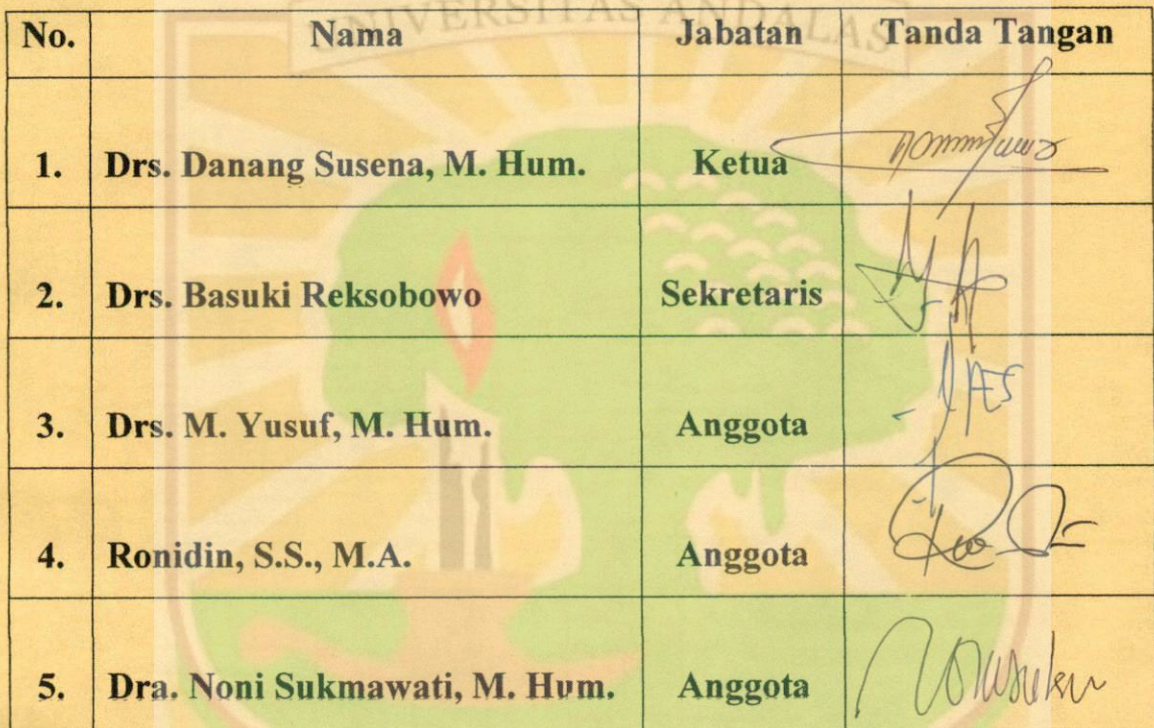 UNIVERSITAS ANDALAS
No. Nama Jabatan Tanda Tangan
1. Drs. Danang Susena, M. Hum. Ketua
2. Drs. Basuki Reksobowo Sekretaris
3. Drs. M. Yusuf, M. Hum. Anggota
4. Ronidin, S.S., M.A. Anggota
5. Dra. Noni Sukmawati, M. Hum. Anggota